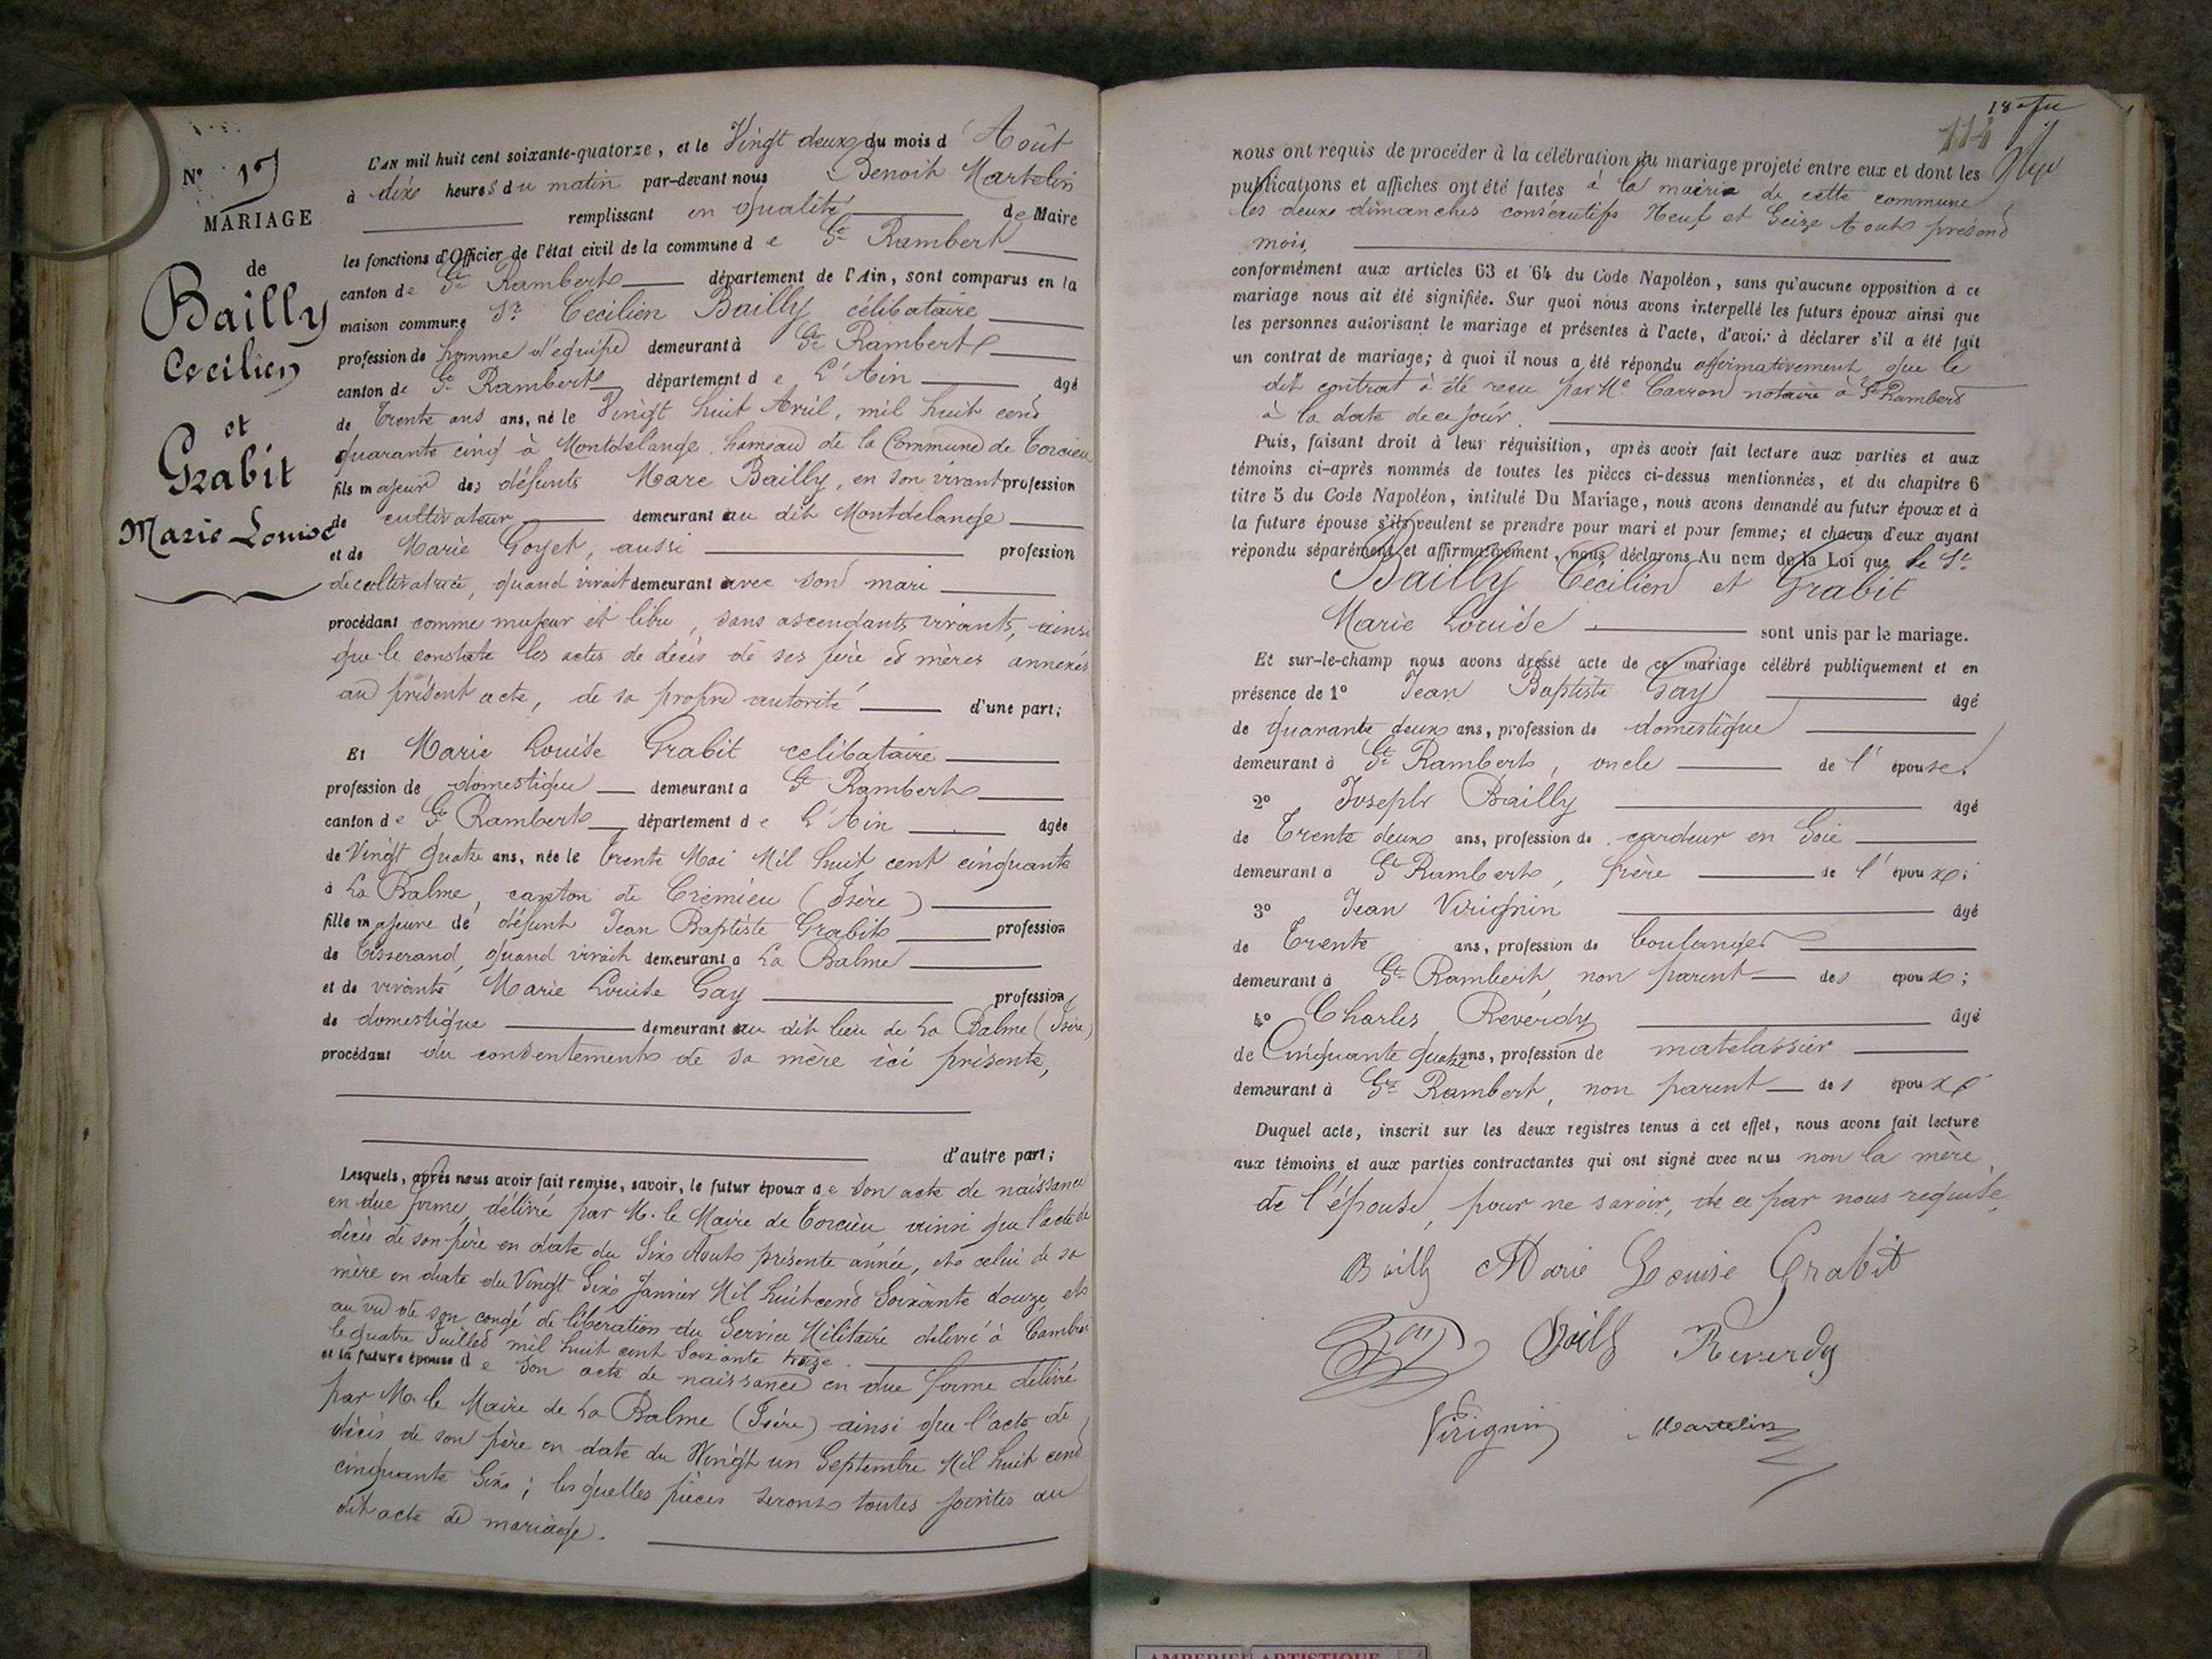 N° 17
MARIAGE
de
Bailly
Cecilien
et
Grabit
Marie Louise
L'AN mil huit cent soixante-quatorze, et le Vingt deux du mois d'Août
à dix heures du matin par-devant nous Benoit Martelin
remplissant en qualité de Maire
les fonctions d'Officier de l'état civil de la commune de St Rambert
canton de St Rambert département de l'Ain, sont comparus en la
maison commune Sr Cecilien Bailly célibataire
profession de homme d'équipe demeurant à St Rambert
canton de St Rambert département de L'Ain âgé
de Trente ans ans, né le Vingt huit Avril, mil huit cent
quarante cinq à Montdelange hameau de la Commune de Torcieu
fils majeur des défunts Marc Bailly, en son vivant profession
de cultivateur demeurant au dit Montdelange
et de Marie Goyet, aussi profession
de cultivatrice, quand vivait demeurant avec son mari
procédant comme majeur et libre, sans ascendants vivants, ainsi
que le constate les actes de décès de ses père et mères annexés
au présent acte, de sa propre autorité d'une part;
Et Marie Louise Grabit celibataire
profession de domestique demeurant à St Rambert
canton de St Rambert département de L'Ain âgée
de Vingt quatre ans, née le trente Mai Mil huit cent cinquante
à La Balme, canton de Crémieu (Isère)
fille majeure de défunt Jean Baptiste Grabit profession
de tisserand, quand vivait demeurant à La Balme
et de vivante Marie Louise Gay profession
de domestique demeurant au dit lieu de La Balme (Isère)
procédant du consentement de sa mère ici présente,
d'autre part;
Lesquels, après nous avoir fait remise, savoir, le futur époux de son acte de naissance
en due forme, délivré par M. le Maire de Torcieu, ainsi que l'acte de
décès de son père en date du Six Août présente année, et celui de sa
mère en date du Vingt Six Janvier Mil huit cent Soixante douze, et
au vu de son congé de libération du Service Militaire délivré à Cambrai
le quatre Juillet mil huit cent soixante treize.
et la future épouse de son acte de naissance en due forme délivré
par M. le Maire de La Balme (Isère) ainsi que l'acte de
décès de son père en date du Vingt un Septembre Mil huit cent
cinquante Six; lesquelles pièces seront toutes jointes au
dit acte de mariage.
114
nous ont requis de procéder à la célébration du mariage projeté entre eux et dont les
publications et affiches ont été faites à la mairie de cette commune
les deux dimanches consécutifs Neuf et Seize Août présent
mois,
conformément aux articles 63 et 64 du Code Napoléon, sans qu'aucune opposition à ce
mariage nous ait été signifiée. Sur quoi nous avons interpellé les futurs époux ainsi que
les personnes autorisant le mariage et présentes à l'acte, d'avoir à déclarer s'il a été fait
un contrat de mariage; à quoi il nous a été répondu affirmativement, que le
dit contrat à été recu par Me Carron notaire à St Rambert
à la date de ce jour.
Puis, faisant droit à leur réquisition, après avoir fait lecture aux parties et aux
témoins ci-après nommés de toutes les pièces ci-dessus mentionnées, et du chapitre 6
titre 5 du Code Napoléon, intitulé Du Mariage, nous avons demandé au futur époux et à
la future épouse s'ils veulent se prendre pour mari et pour femme; et chacun d'eux ayant
répondu séparément et affirmativement, nous déclarons Au nom de la Loi que le Sr
Bailly Cécilien et Grabit
Marie Louise sont unis par le mariage.
Et sur-le-champ nous avons dressé acte de ce mariage célébré publiquement et en
présence de 1° Jean Baptiste Gay âgé
de quarante deux ans, profession de domestique
demeurant à St Rambert, oncle de l'épouse.
2° Joseph Bailly âgé
de Trente deux ans, profession de cardeur en Soie
demeurant à St Rambert, frère de l'époux;
3° Jean Virignin âgé
de Trente ans, profession de boulanger
demeurant à St Rambert, non parent des époux;
4° Charles Reverdy âgé
de Cinquante quatre ans, profession de matelassier
demeurant à St Rambert, non parent des époux
Duquel acte, inscrit sur les deux registres tenus à cet effet, nous avons fait lecture
aux témoins et aux parties contractantes qui ont signé avec nous non la mère
de l'épouse, pour ne savoir, de ce par nous requise,
Bailly Marie Louise Grabit
Bailly Reverdy
Virignin Martelin
AMBERIEU ARTISTIQUE